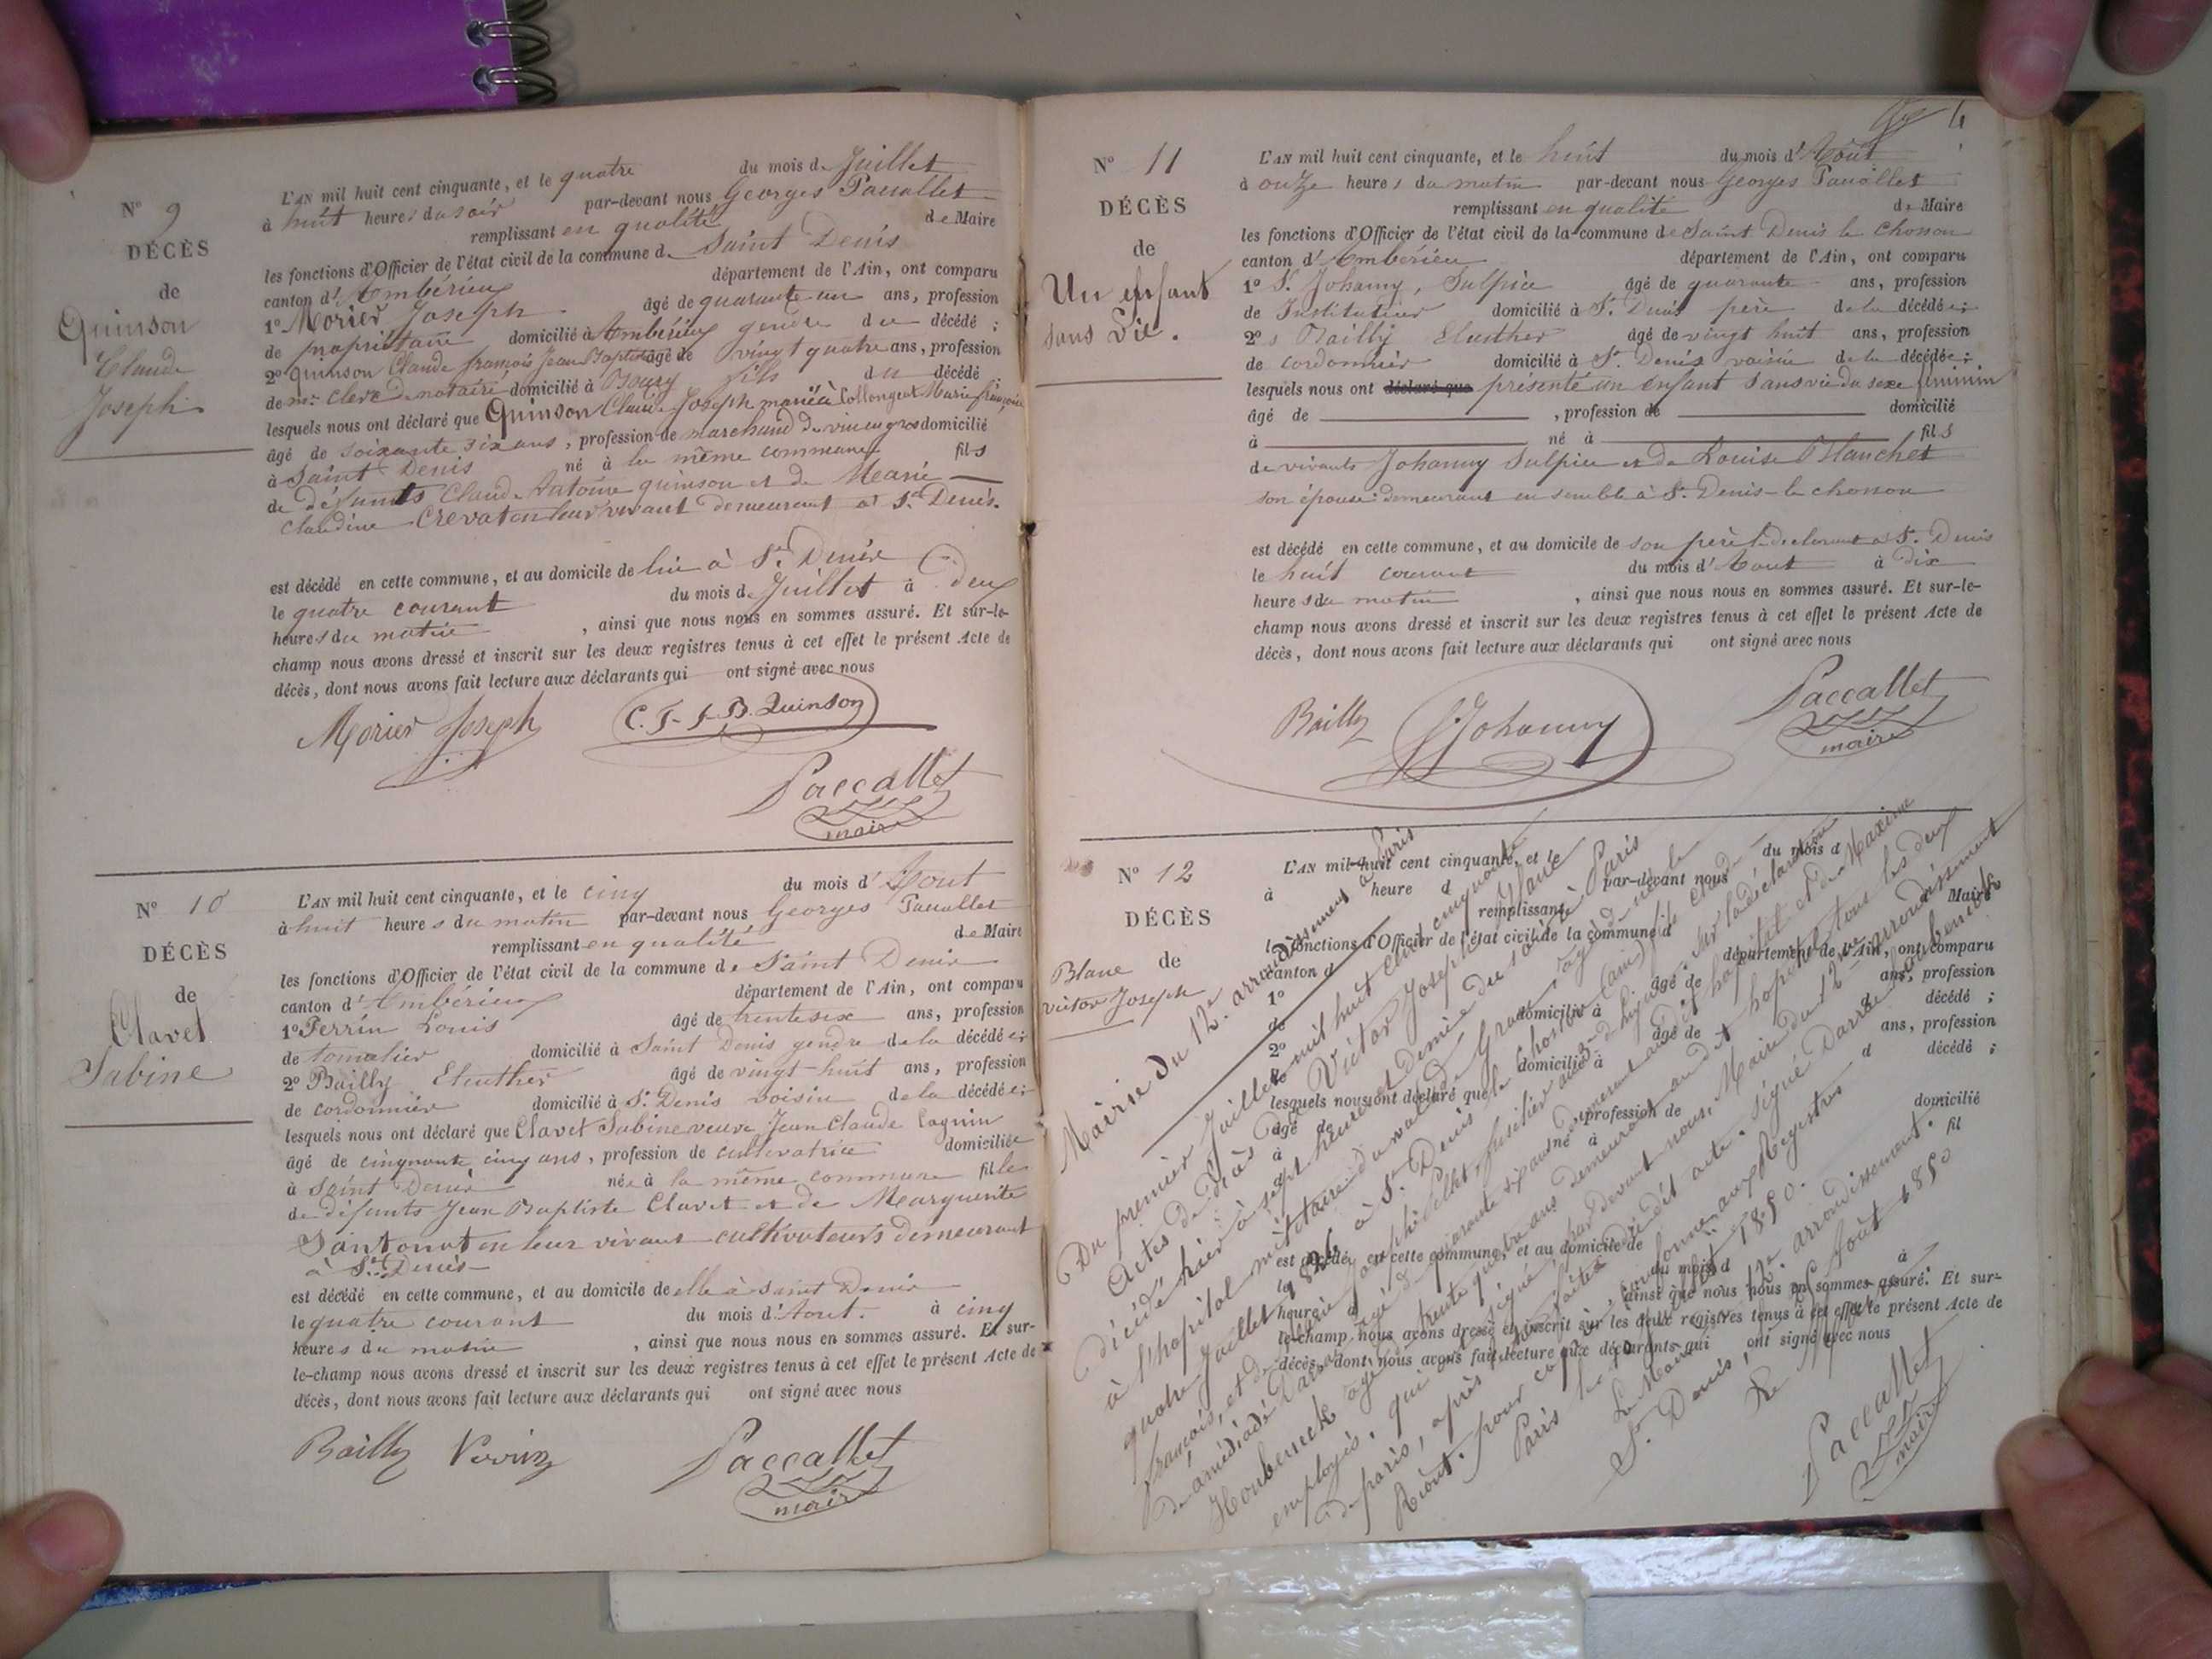 N° 9
DÉCÈS
de
Quinson
Claude
Joseph
L'AN mil huit cent cinquante, et le quatre du mois de Juillet
à huit heures du soir par-devant nous Georges Paccallet
remplissant en qualité de Maire
les fonctions d'Officier de l'état civil de la commune de Saint Denis
canton d'Ambérieux département de l'Ain, ont comparu
1° Morier Joseph âgé de quarante un ans, profession
de propriétaire domicilié à Ambérieux gendre du décédé ;
2° Quinson Claude françois Jean Baptiste âgé de vingt quatre ans, profession
de me clerc de notaire domicilié à Bourg fils du décédé
lesquels nous ont déclaré que Quinson Claude Joseph marié à Collonges Marie françoise
âgé de soixante six ans, profession de marchand de vin en gros domicilié
à Saint Denis né à la même commune fils
de défunts Claude Antoine quinson et de Marie
Claudine Crevat en leur vivant demeurant à St. Denis.
est décédé en cette commune, et au domicile de lui à St. Denis
le quatre courant du mois de Juillet à deux
heures du matin , ainsi que nous nous en sommes assuré. Et sur-le-
champ nous avons dressé et inscrit sur les deux registres tenus à cet effet le présent Acte de
décès, dont nous avons fait lecture aux déclarants qui ont signé avec nous
Morier Joseph C. F. J. B. Quinson
Paccallet
maire
N° 10
DÉCÈS
de
Clavet
Sabine
L'AN mil huit cent cinquante, et le cinq du mois d'Aout
à huit heures du matin par-devant nous Georges Paccallet
remplissant en qualité de Maire
les fonctions d'Officier de l'état civil de la commune de Saint Denis
canton d'Ambérieux département de l'Ain, ont comparu
1° Perrin Louis âgé de trente six ans, profession
de tonnelier domicilié à Saint Denis gendre de la décédée ;
2° Bailly Eleuther âgé de vingt-huit ans, profession
de cordonnier domicilié à St. Denis voisin de la décédée ;
lesquels nous ont déclaré que Clavet Sabine veuve Jean Claude Cagnin
âgé de cinquante cinq ans, profession de cultivatrice domiciliée
à Saint Denis née à la même commune fille
de défunts Jean Baptiste Clavet et de Marguerite
Santonat en leur vivant cultivateurs demeurant
à St. Denis
est décédé en cette commune, et au domicile de elle à Saint Denis
le quatre courant du mois d'Aout. à cinq
heures du matin , ainsi que nous nous en sommes assuré. Et sur-
le-champ nous avons dressé et inscrit sur les deux registres tenus à cet effet le présent Acte de
décès, dont nous avons fait lecture aux déclarants qui ont signé avec nous
Bailly Perrin Paccallet
maire
4
N° 11
DÉCÈS
de
Un enfant
sans Vie.
L'AN mil huit cent cinquante, et le huit du mois d'Août
à onze heures du matin par-devant nous Georges Paccallet
remplissant en qualité de Maire
les fonctions d'Officier de l'état civil de la commune de Saint Denis le Chosson
canton d'Ambérieu département de l'Ain, ont comparu
1° S. Johanny, Sulpice âgé de quarante ans, profession
de Instituteur domicilié à St. Denis père de la décédée ;
2° s Bailly Eleuther âgé de vingt huit ans, profession
de cordonnier domicilié à St. Denis voisin de la décédée ;
lesquels nous ont déclaré que présenté un enfant sans vie du sexe féminin
âgé de , profession de domicilié
à né à fils
de vivants Johanny Sulpice et de Louise Blanchet
son épouse demeurant ensemble à St. Denis-le chosson
est décédé en cette commune, et au domicile de son père le déclarant à St. Denis
le huit courant du mois d'Aout à dix
heures du matin , ainsi que nous nous en sommes assuré. Et sur-le-
champ nous avons dressé et inscrit sur les deux registres tenus à cet effet le présent Acte de
décès, dont nous avons fait lecture aux déclarants qui ont signé avec nous
Bailly SJohanny Paccallet
maire
N° 12
DÉCÈS
de
Blanc
Victor Joseph
L'AN mil huit cent cinquante, et le du mois d
à heure d par-devant nous
remplissant Maire
les fonctions d'Officier de l'état civil de la commune d
canton d département de l'Ain, ont comparu
1° âgé de ans, profession
de domicilié à décédé ;
2° âgé de ans, profession
de domicilié à d décédé ;
lesquels nous ont déclaré que
âgé de profession de domicilié
à né à fil
est décédé en cette commune, et au domicile de
le du mois d à
heure d ainsi que nous nous en sommes assuré. Et sur-
le-champ nous avons dressé et inscrit sur les deux registres tenus à cet effet le présent Acte de
décès, dont nous avons fait lecture aux déclarants qui ont signé avec nous
Mairie du 12e arrondissement à Paris
Du premier Juillet mil huit cent cinquante
Actes de Décès de Victor Joseph Blanc
décédé hier à sept heures et demie du soir à Paris
à l'hopital militaire du val de Grace, âgé de né le
quatre Juillet 1824 à St. Denis le chosson (ain) fils de
françois, et de Joseph fusilier au sur la déclaration
de amédé âgé de quarante six ans demeurant au dit hopital et de Maxime
Houbeneck âgé de trente quatre ans demeurant au dit hopital tous les deux
employés, qui ont signé par devant nous, Maire du 12me arrondissement
de paris, après lecture faite du dit acte. Signé
pour copie conforme aux Registres
Paris le 1850.
Le Maire du 12e arrondissement.
St. Denis, le Août 1850
Le Maire
Paccallet
maire